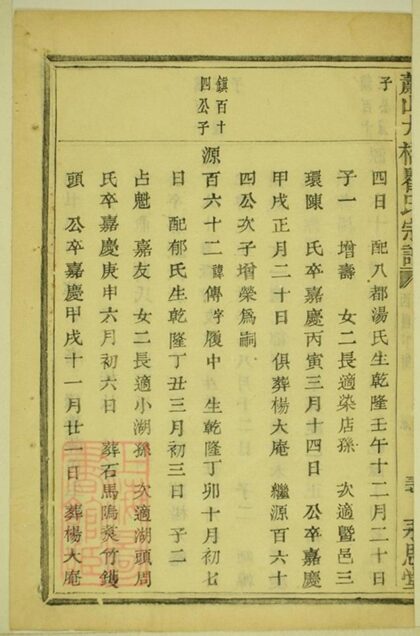 蕭山大橋瞿氏宗譜
永思堂
子
四日 配八都湯氏生乾隆壬午十二月二十日
子一 增壽 女二長適染店孫 次適暨邑三
環陳 氏卒嘉慶丙寅三月十四日 公卒嘉慶
甲戌正月二十日 俱葬楊大庵 繼源百六十
四公次子增榮為嗣
鎮百十
四公子
源百六十二諱傳字履中 生乾隆丁卯十月初七
日 配郁氏生乾隆丁丑三月初三日 子二
占魁 嘉友 女二長適小湖孫 次適湖頭周
氏卒嘉慶庚申六月初六日 葬石馬隝裘竹鑊
頭 公卒嘉慶甲戌十一月廿一日 葬楊大庵